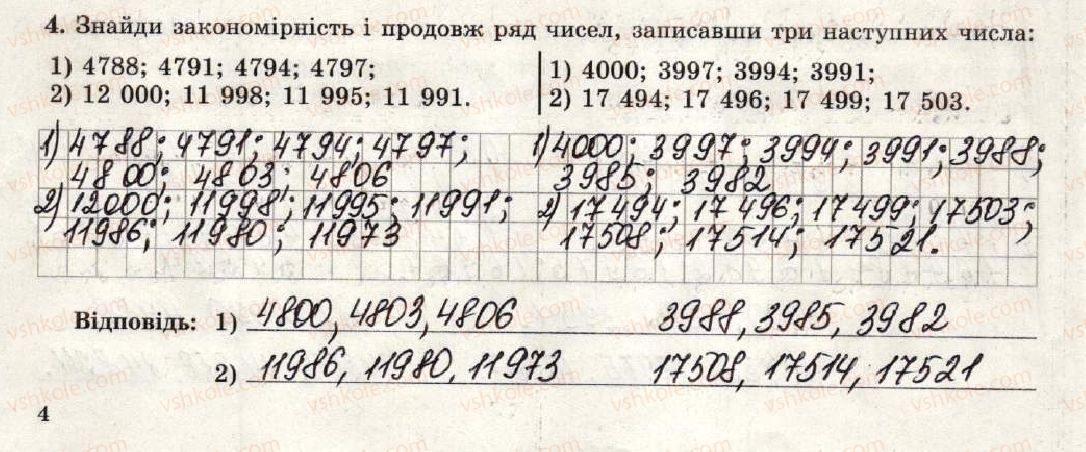 4. Знайди закономірність і продовж ряд чисел, записавши три наступних числа:
1) 4788; 4791; 4794; 4797;
2) 12 000; 11 998; 11 995; 11 991.
1) 4000; 3997; 3994; 3991;
2) 17 494; 17 496; 17 499; 17 503.
1) 4788; 4791; 4794; 4797;
4800; 4803; 4806
2) 12000; 11998; 11995; 11991;
11986; 11980; 11973
1) 4000; 3997; 3994; 3991; 3988;
3985; 3982
2) 17494; 17496; 17499; 17503;
17508; 17514; 17521.
Відповідь: 1) 4800, 4803, 4806 3988, 3985, 3982
2) 11986, 11980, 11973 17508, 17514, 17521
4